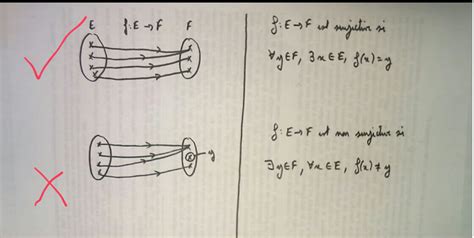 E f: E → F F
f: E → F est surjective si
∀y∈F, ∃x∈E, f(x)=y
f: E → F est non surjective si
y
∃y∈F, ∀x∈E, f(x)≠y